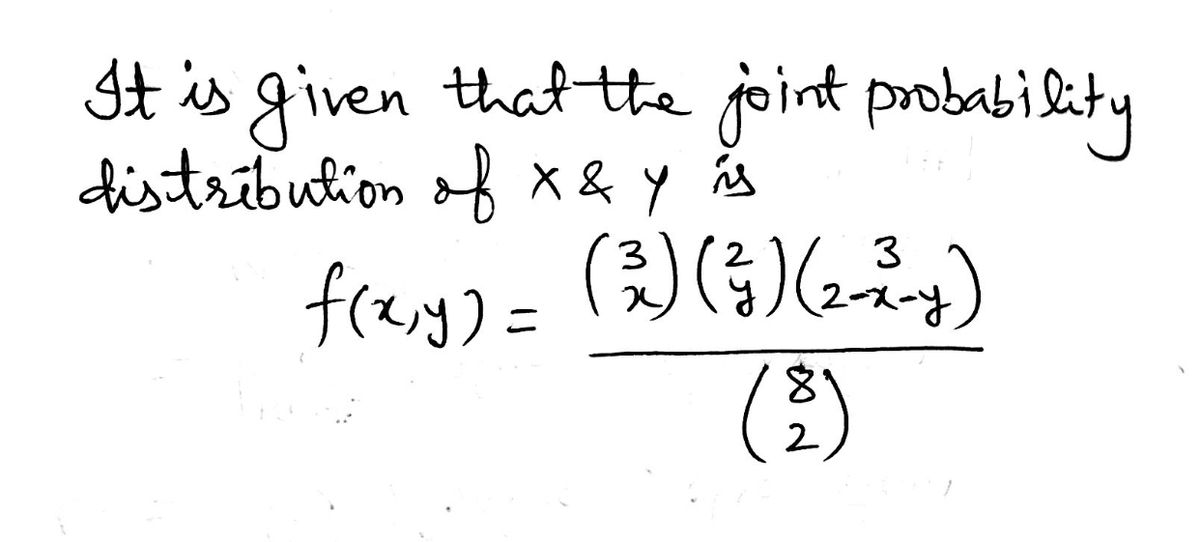 It is given that the joint probability
distribution of X & Y is
f(x,y) = \frac{\binom{3}{x}\binom{2}{y}\binom{3}{2-x-y}}{\binom{8}{2}}